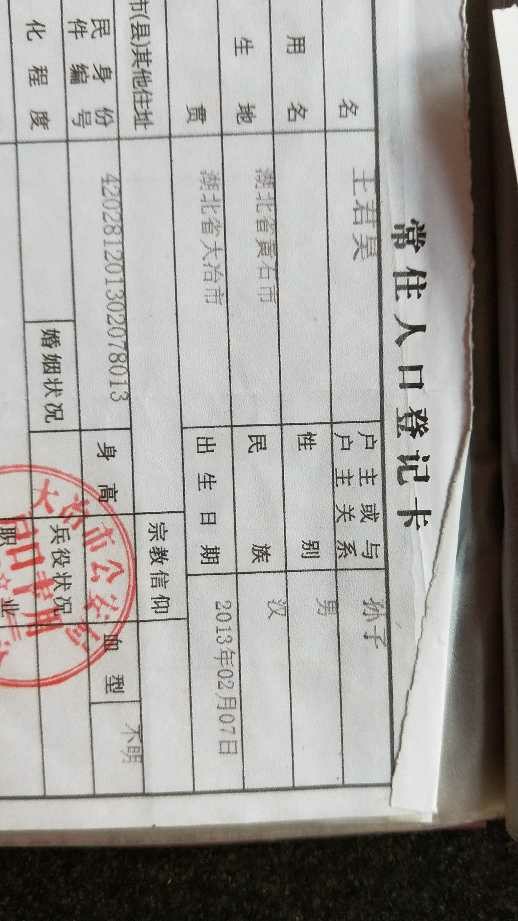 常住人口登记卡
名 王君昊 户主或与户主关系 孙子
用名 性别 男
生地 湖北省黄石市 民族 汉
贯 湖北省大冶市 出生日期 2013年02月07日
市(县)其他住址 宗教信仰
民身份件编号 420281201302078013 身高 血型 不明
化程度 婚姻状况 兵役状况
职业
大冶市公安局